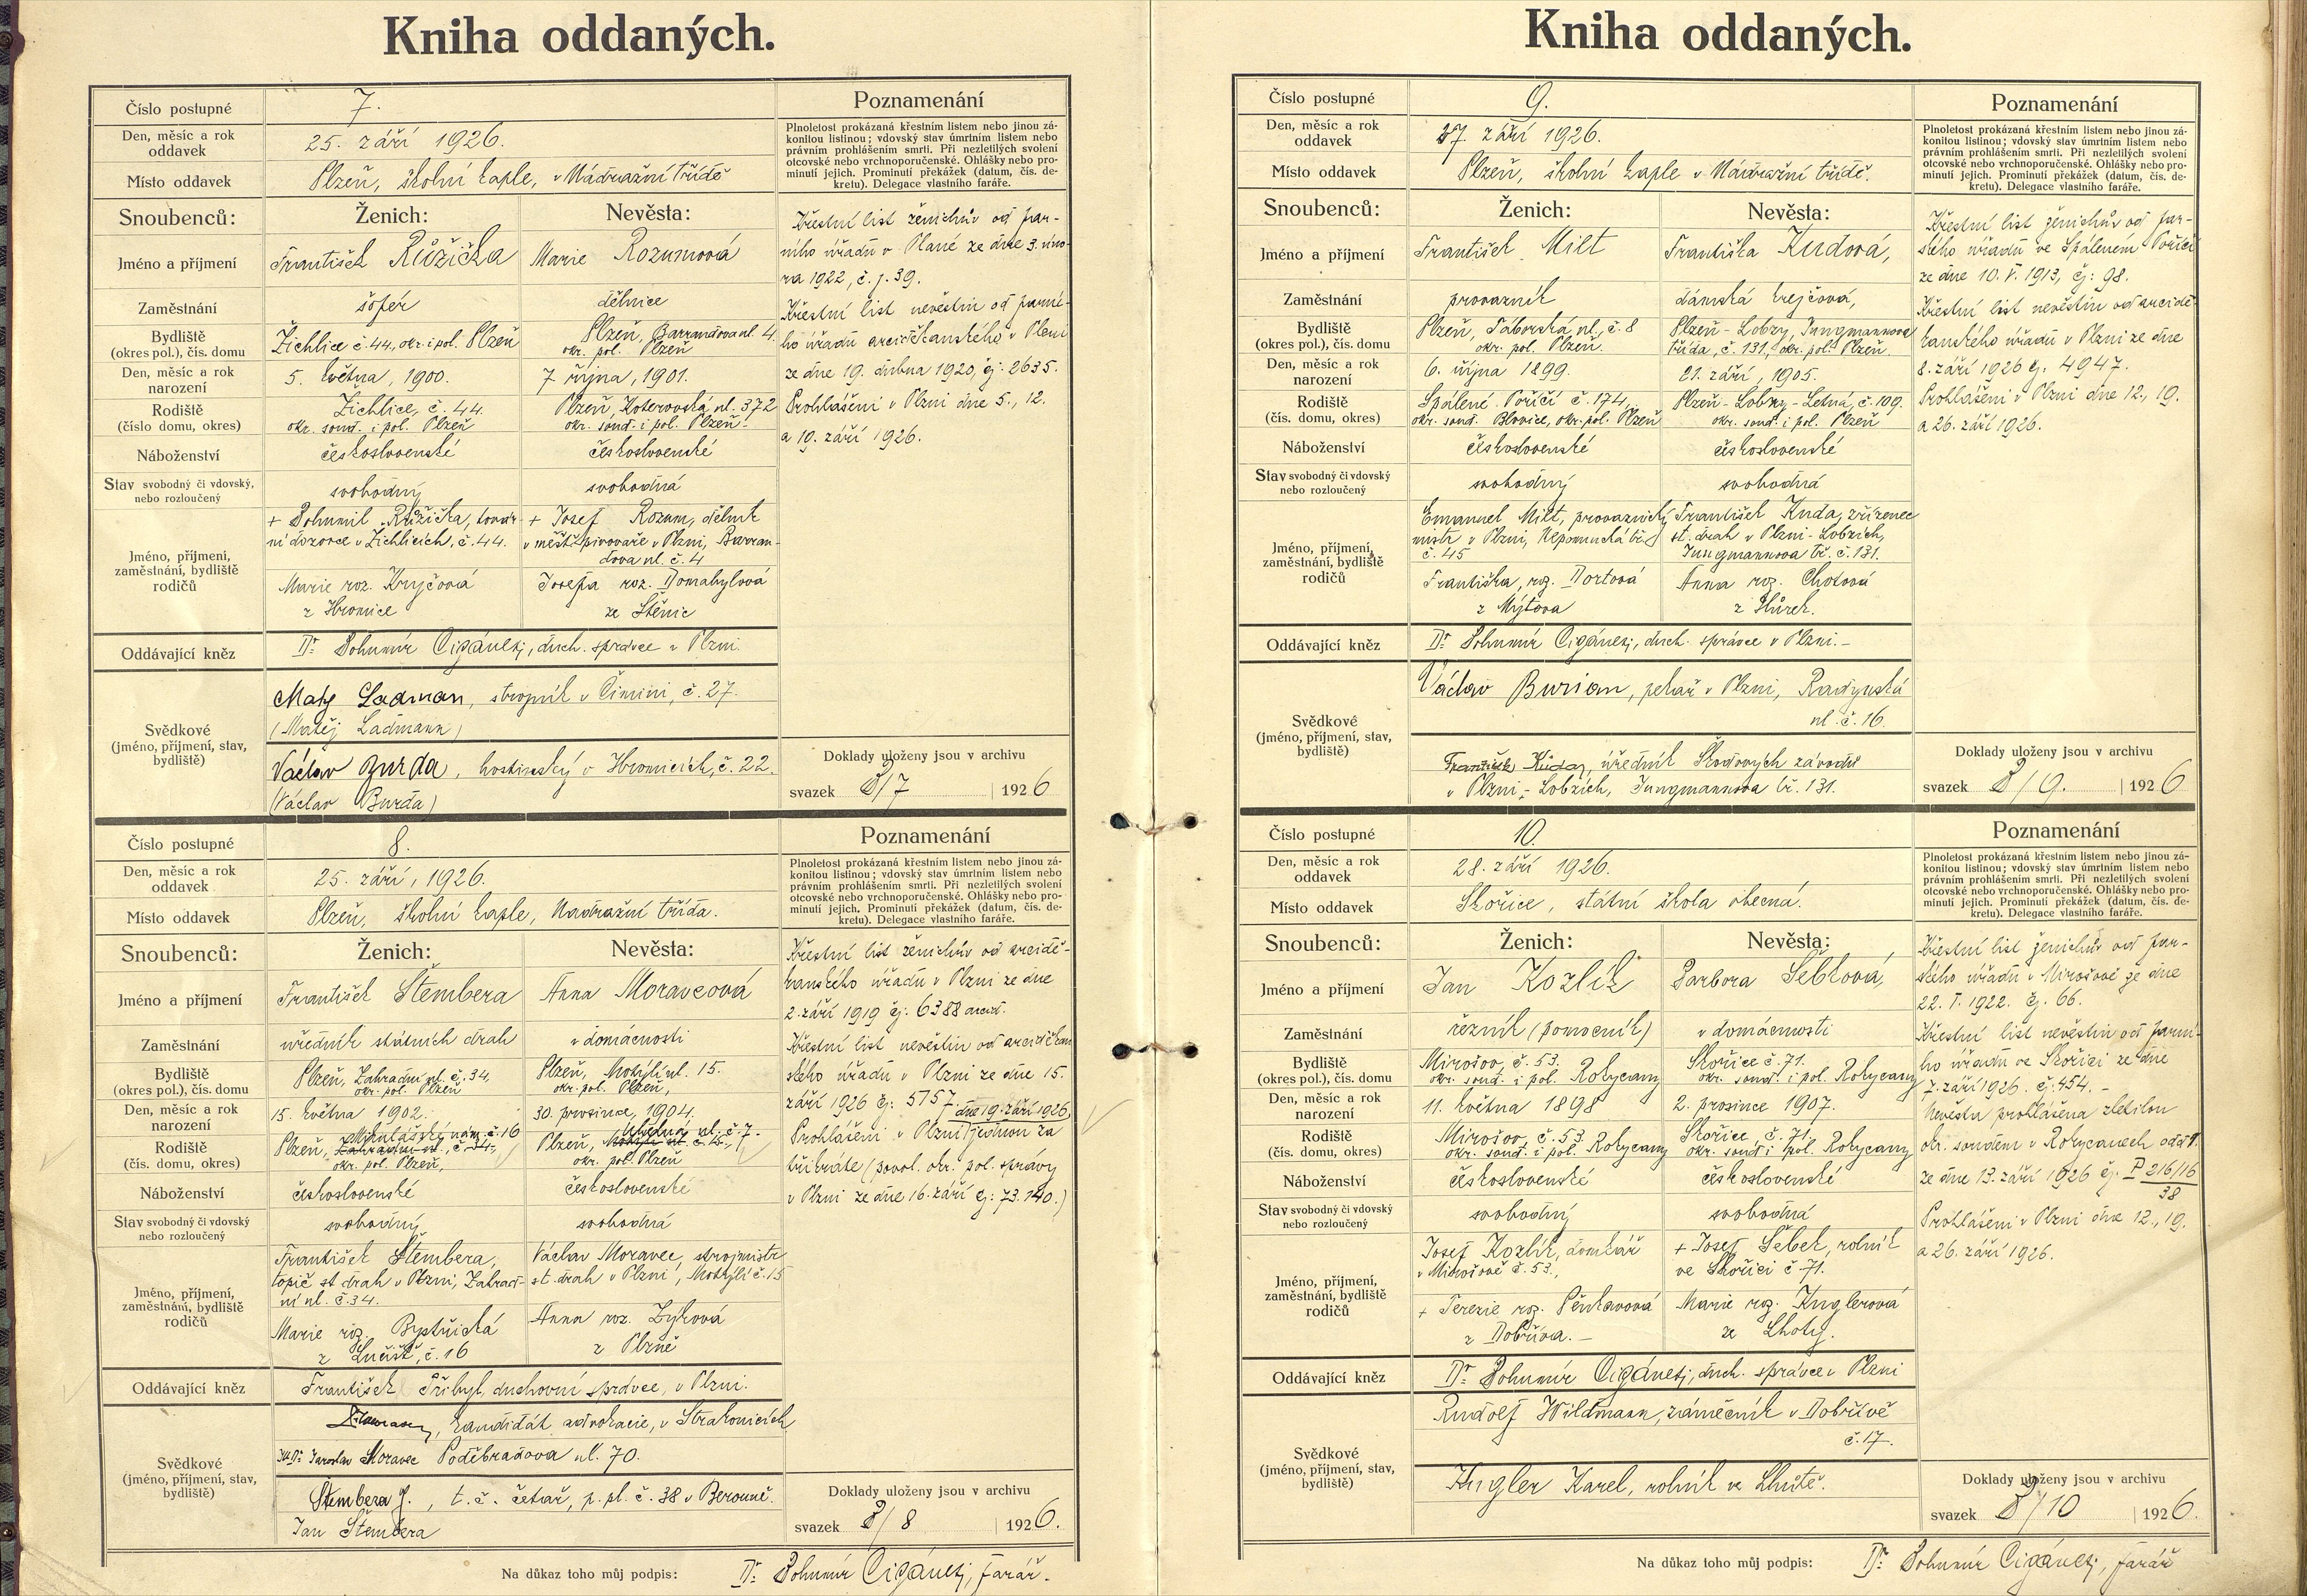 Kniha oddaných.
Číslo postupné 7. Poznamenání
Den, měsíc a rok oddavek 25. září 1926.
Plnoletost prokázaná křestním listem nebo jinou zá-
konitou listinou; vdovský stav úmrtním listem nebo
právním prohlášením smrti. Při nezletilých svolení
otcovské nebo vrchnoporučenské. Ohlášky nebo pro-
minutí jejich. Prominutí překážek (datum, čís. de-
kretu). Delegace vlastního faráře.
Místo oddavek Plzeň, školní kaple, v Nádražní třídě
Snoubenců: Ženich: Nevěsta:
Jméno a příjmení František Růžička Marie Rozumová
Zaměstnání šofér dělnice
Bydliště (okres pol.), čís. domu Žichlice č. 44, okr. i pol. Plzeň Plzeň, Barrandova ul. 4. okr. pol. Plzeň
Den, měsíc a rok narození 5. května, 1900. 7 října, 1901.
Rodiště (číslo domu, okres) Žichlice, č. 44. okr. soud. i pol. Plzeň Plzeň, Koterovská ul. 372 okr. soud. i pol. Plzeň
Náboženství československé československé
Stav svobodný či vdovský, nebo rozloučený svobodný svobodná
Jméno, příjmení, zaměstnání, bydliště rodičů
+ Bohumil Růžička, továr-
ní dozorce v Žichlicích, č. 44.
Marie roz. Krejčová
z Hromice
+ Josef Rozum, dělník
v měšť. pivovaře v Plzni, Barran-
dova ul. č. 4
Josefa roz. Domabylová
ze Štěnic
Oddávající kněz Dr. Bohumír Cigánek, duch. správce v Plzni.
Svědkové (jméno, příjmení, stav, bydliště)
Matěj Ladman, strojník v Čimini, č. 27.
(Matěj Ladmann)
Václav Burda, hostinský v Hromicích, č. 22.
(Václav Burda)
Křestní list ženichův od far-
ního úřadu v Plané ze dne 3. úno-
ra 1922, č. j. 39.
Křestní list nevěstin od farní-
ho úřadu arciděkanského v Plzni
ze dne 19. dubna 1920, čj: 2635.
Prohlášeni v Plzni dne 5., 12.
a 19. září 1926.
Doklady uloženy jsou v archivu
svazek 8/7 1926
Číslo postupné 8. Poznamenání
Den, měsíc a rok oddavek 25. září, 1926.
Plnoletost prokázaná křestním listem nebo jinou zá-
konitou listinou; vdovský stav úmrtním listem nebo
právním prohlášením smrti. Při nezletilých svolení
otcovské nebo vrchnoporučenské. Ohlášky nebo pro-
minutí jejich. Prominutí překážek (datum, čís. de-
kretu). Delegace vlastního faráře.
Místo oddavek Plzeň, školní kaple, Nádražní třída.
Snoubenců: Ženich: Nevěsta:
Jméno a příjmení František Štembera Anna Moravcová
Zaměstnání úředník státních drah v domácnosti
Bydliště (okres pol.), čís. domu Plzeň, Zahradní ul. č. 34, okr. pol. Plzeň Plzeň, Motýlí ul. 15. okr. pol. Plzeň,
Den, měsíc a rok narození 15. května 1902. 30. prosince, 1904.
Rodiště (čís. domu, okres) Plzeň, Mikulášské nám. č. 16 okr. pol. Plzeň, Plzeň, ul. č. 7. okr. pol. Plzeň
Náboženství československé československé
Stav svobodný či vdovský nebo rozloučený svobodný svobodná
Jméno, příjmení, zaměstnání, bydliště rodičů
František Štembera,
topič st. drah v Plzni, Zahrad-
ní ul. č. 34.
Marie roz. Bystřická
z Lučišť, č. 16
Václav Moravec, strojmistr
st. drah v Plzni, Motýlí č. 15
Anna roz. Zýková
z Plzně
Oddávající kněz František Přibyl, duchovní správce, v Plzni.
Svědkové (jméno, příjmení, stav, bydliště)
kandidát advokacie, v Strakonicích
JUDr. Jaroslav Moravec Poděbradova ul. 70.
Štembera J., t. č. četař, p. pl. č. 38 v Berouně.
Jan Štembera
Křestní list ženichův od arcidě-
kanského úřadu v Plzni ze dne
2. září 1919 čj: 6388 arcid.
Křestní list nevěstin od arciděkan
ského úřadu v Plzni ze dne 15.
září 1926 čj: 5757. dne 19. září 1926,
Prohlášeni v Plzni jednou za
třikráte (povol. okr. pol. správy
v Plzni ze dne 16. září čj: 73.140.)
Doklady uloženy jsou v archivu
svazek 8/8 1926.
Na důkaz toho můj podpis: Dr. Bohumír Cigánek, farář.
Kniha oddaných.
Číslo postupné 9. Poznamenání
Den, měsíc a rok oddavek 27. září 1926.
Plnoletost prokázaná křestním listem nebo jinou zá-
konitou listinou; vdovský stav úmrtním listem nebo
právním prohlášením smrti. Při nezletilých svolení
otcovské nebo vrchnoporučenské. Ohlášky nebo pro-
minutí jejich. Prominutí překážek (datum, čís. de-
kretu). Delegace vlastního faráře.
Místo oddavek Plzeň, školní kaple v Nádražní třídě.
Snoubenců: Ženich: Nevěsta:
Jméno a příjmení František Milt Františka Kudová,
Zaměstnání provazník dámská krejčová,
Bydliště (okres pol.), čís. domu Plzeň, Táborská ul., č. 8 okr. pol. Plzeň. Plzeň - Lobzy, Jungmannova třída, č. 131, okr. pol. Plzeň.
Den, měsíc a rok narození 6. října 1899. 21. září, 1905.
Rodiště (čís. domu, okres) Spálené Poříčí č. 174, okr. soud. Blovice, okr. pol. Plzeň Plzeň - Lobzy - Letná, č. 109. okr. soud. i pol. Plzeň
Náboženství československé československé
Stav svobodný či vdovský nebo rozloučený svobodný svobodná
Jméno, příjmení, zaměstnání, bydliště rodičů
Emanuel Milt, provaznický
mistr v Plzni, Nepomucká tř.
č. 45
Františka, roz. Dortová
z Mýtova
František Kuda, zřízenec
st. drah v Plzni - Lobzích,
Jungmannova tř. č. 131.
Anna roz. Chotová
z Hůrek.
Oddávající kněz Dr. Bohumír Cigánek, duch. správce v Plzni. -
Svědkové (jméno, příjmení, stav, bydliště)
Václav Burian, pekař v Plzni, Radyňská
ul. č. 16.
František Kuda, úředník Škodových závodů
v Plzni - Lobzích, Jungmannova tř. 131.
Křestní list ženichův od far-
ského úřadu ve Spáleném Poříčí
ze dne 10. V. 1913, čj: 98.
Křestní list nevěstin od arcidě-
kanského úřadu v Plzni ze dne
8. září 1926 čj. 4947.
Prohlášeni v Plzni dne 12., 19.
a 26. září 1926.
Doklady uloženy jsou v archivu
svazek 8/9. 1926
Číslo postupné 10. Poznamenání
Den, měsíc a rok oddavek 28. září 1926.
Plnoletost prokázaná křestním listem nebo jinou zá-
konitou listinou; vdovský stav úmrtním listem nebo
právním prohlášením smrti. Při nezletilých svolení
otcovské nebo vrchnoporučenské. Ohlášky nebo pro-
minutí jejich. Prominutí překážek (datum, čís. de-
kretu). Delegace vlastního faráře.
Místo oddavek Skořice, státní škola obecná.
Snoubenců: Ženich: Nevěsta:
Jméno a příjmení Jan Kozlík Barbora Šebková,
Zaměstnání řezník (pomocník) v domácnosti
Bydliště (okres pol.), čís. domu Mirošov, č. 53. okr. soud. i pol. Rokycany Skořice č. 71. okr. soud. i pol. Rokycany
Den, měsíc a rok narození 11. května 1898 2. prosince 1907.
Rodiště (čís. domu, okres) Mirošov, č. 53. okr. soud. i pol. Rokycany Skořice, č. 71. okr. soud. i pol. Rokycany
Náboženství československé československé
Stav svobodný či vdovský nebo rozloučený svobodný svobodná
Jméno, příjmení, zaměstnání, bydliště rodičů
Josef Kozlík, domkář
v Mirošově č. 53.,
+ Terezie roz. Pěnkavová
z Dobříva. -
+ Josef Šebek, rolník
ve Skořici č. 71.
Marie roz. Kuglerová
ze Lhoty.
Oddávající kněz Dr. Bohumír Cigánek, duch. správce v Plzni
Svědkové (jméno, příjmení, stav, bydliště)
Rudolf Wildmann, zámečník v Dobřívě
č. 17.
Kugler Karel, rolník ve Lhotě.
Křestní list ženichův od far-
ského úřadu v Mirošově ze dne
22. I. 1922. čj. 66.
Křestní list nevěstin od farní-
ho úřadu ve Skořici ze dne
7. září 1926. čj. 454. -
Nevěsta prohlášena zletilou
okr. soudem v Rokycanech odd. 1.
ze dne 13. září 1926 čj. P 216/16
38
Prohlášeni v Plzni dne 12., 19.
a 26. září 1926.
Doklady uloženy jsou v archivu
svazek 8/10 1926.
Na důkaz toho můj podpis: Dr. Bohumír Cigánek, farář